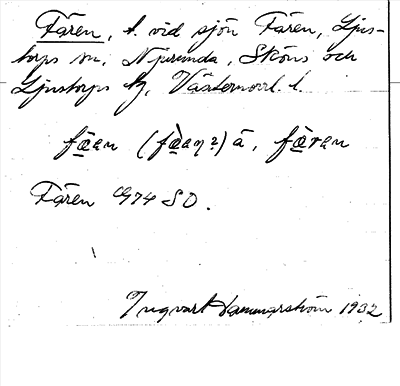 Fären, t. vid sjön Fären, Ljus-
torps sn, Njurunda, Sköns och
Ljustorps tg, Västernorrl. l.
Fären G74 SO.
Ingvart Hammarström 1932